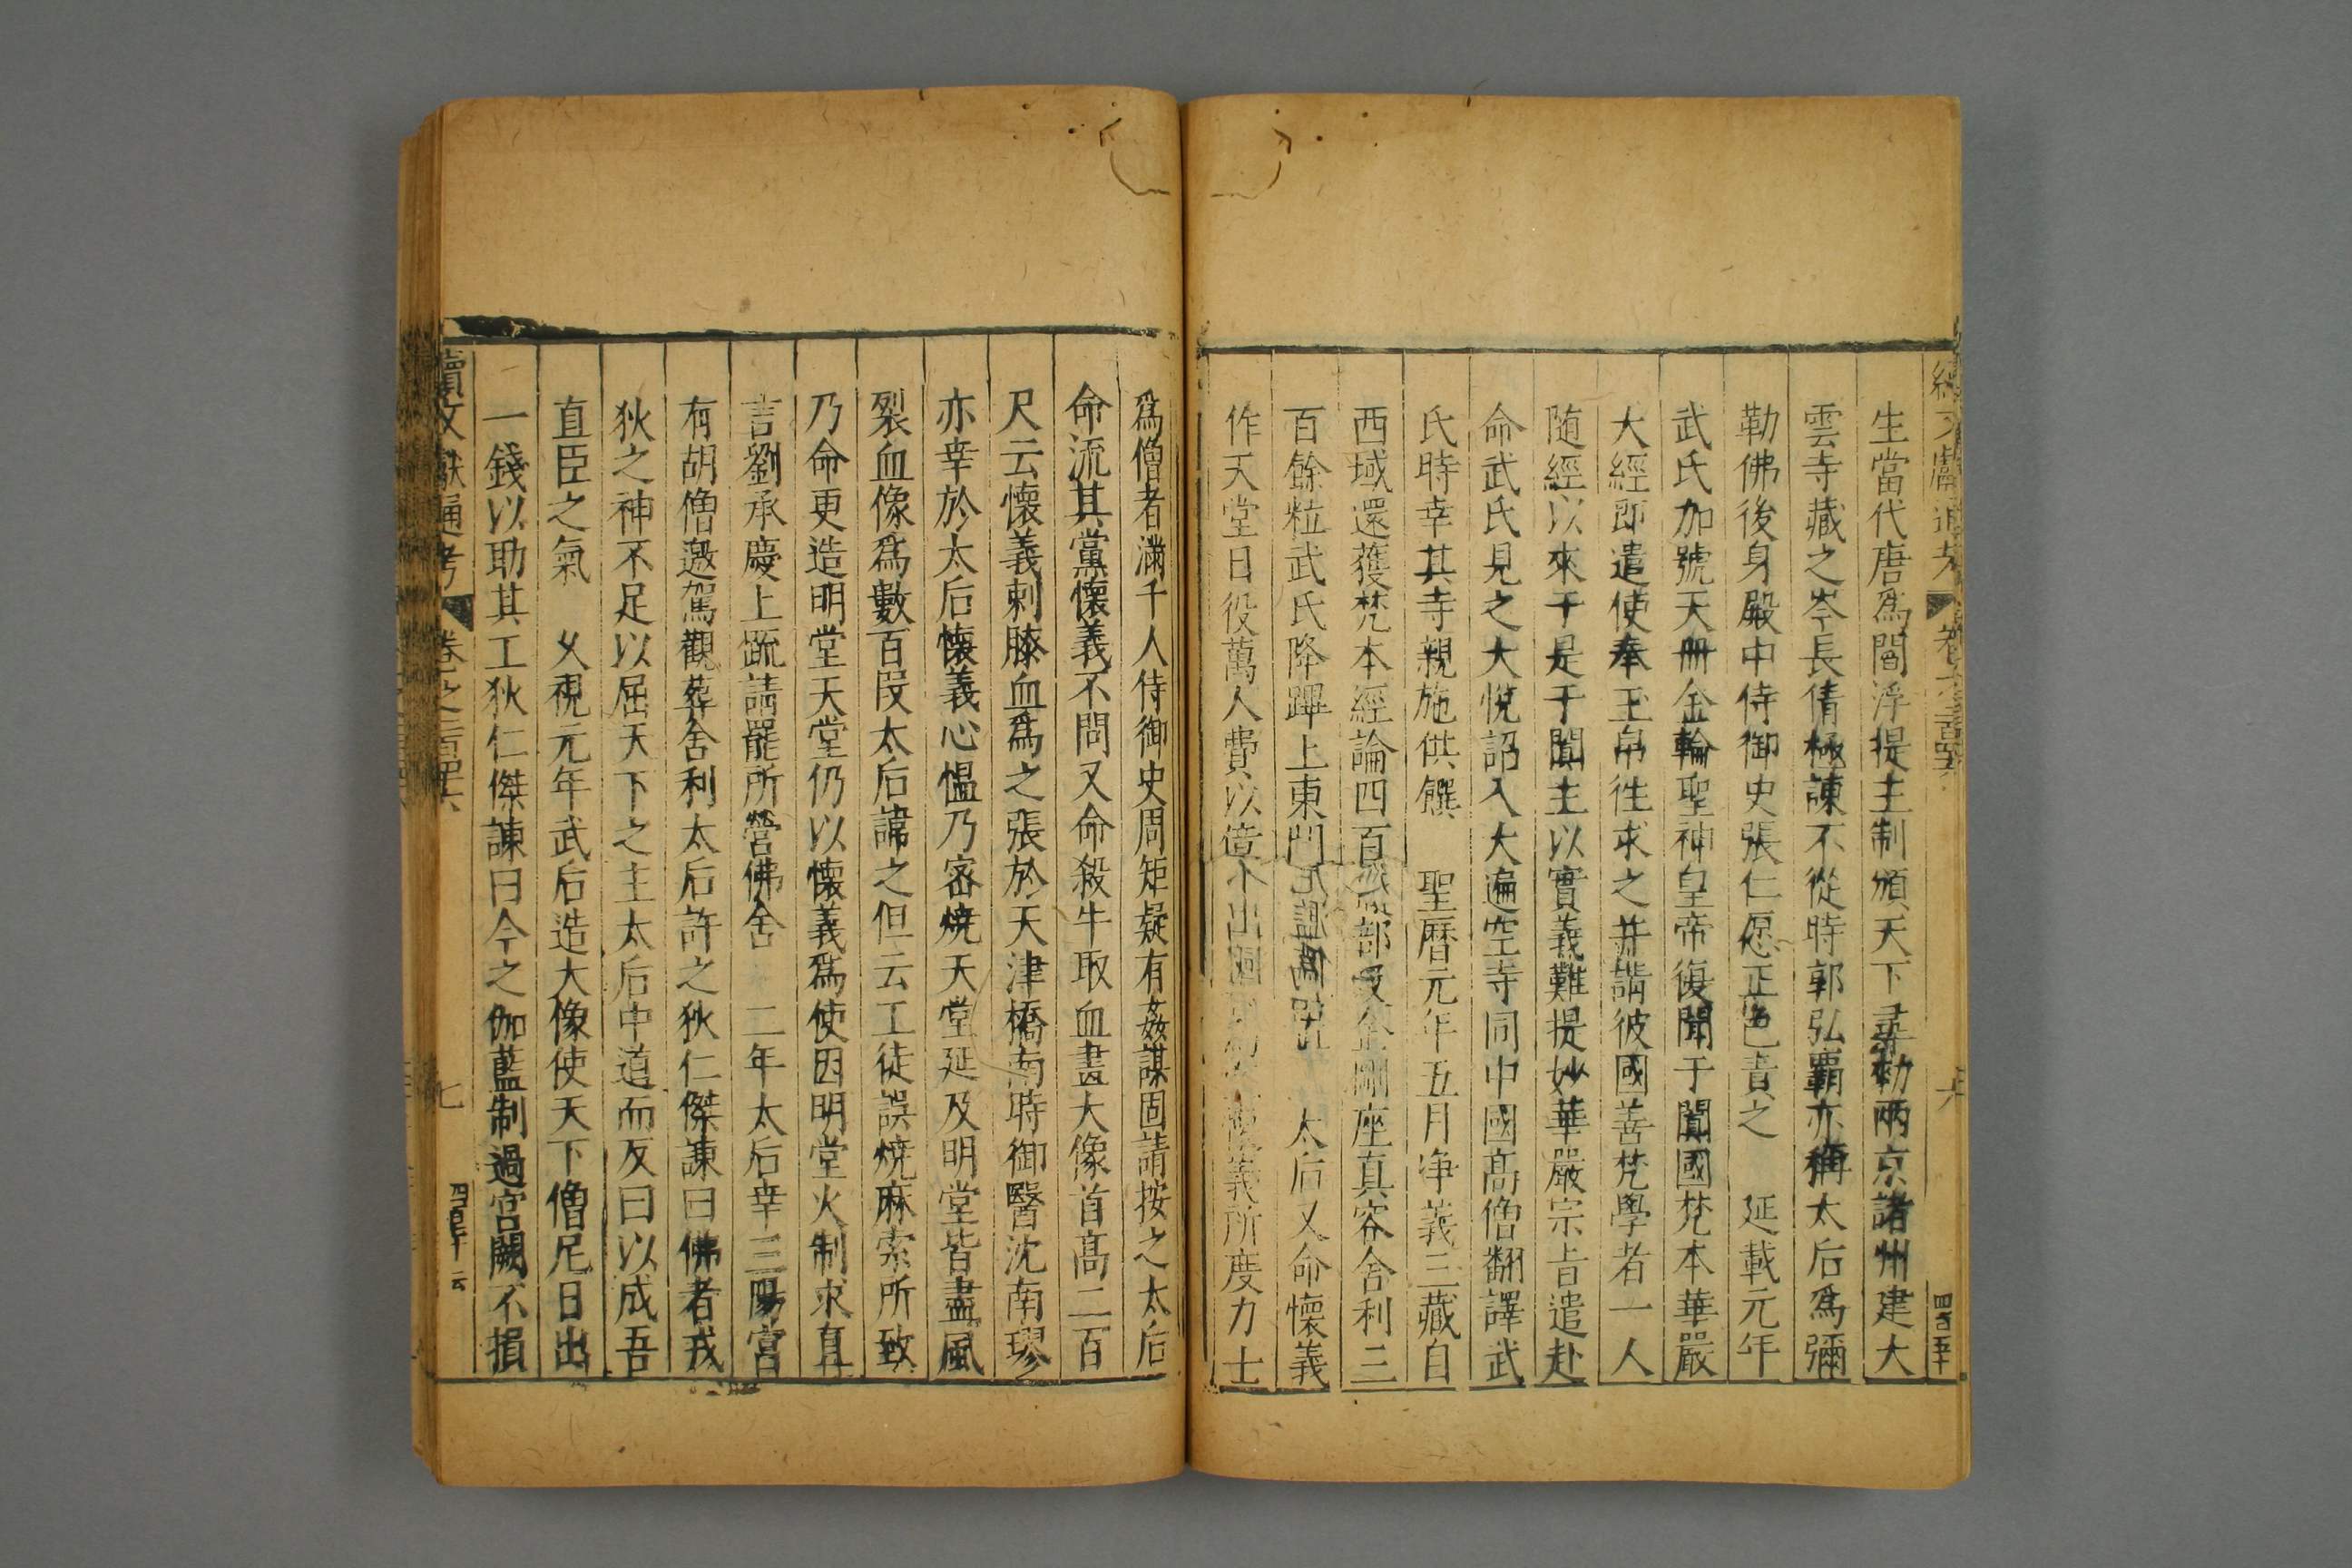 生當代唐爲閻浮提主制頒天下尋勑兩京諸州建大
雲寺藏之岑長倩極諫不從時郭弘霸亦稱太后爲彌
勒佛後身殿中侍御史張仁愿正色責之 延載元年
武氏加號天冊金輪聖神皇帝復聞于闐國梵本華嚴
大經即遣使奉玉帛徃求之并請彼國善梵學者一人
随經以來于是于闐主以實義難提妙華嚴宗旨遣赴
命武氏見之大悅詔入大遍空寺同中國高僧翻譯武
氏時幸其寺親施供饌 聖曆元年五月淨義三藏自
西域還獲梵本經論四百部金剛座真容舍利三
百餘粒武氏降蹕上東門 太后又命懷義
作天堂日役萬人費以億 懷義所度力士
爲僧者滿千人侍御史周矩疑有姦謀固請按之太后
命流其黨懷義不問又命殺牛取血畫大像首高二百
尺云懷義刺膝血爲之張於天津橋南時御醫沈南璆
亦幸於太后懷義心慍乃密燒天堂延及明堂皆盡風
裂血像爲數百段太后諱之但云工徒誤燒麻索所致
乃命更造明堂天堂仍以懷義爲使因明堂火制求直
言劉承慶上疏請罷所營佛舍 二年太后幸三陽宮
有胡僧邀駕觀葬舍利太后許之狄仁傑諫曰佛者戎
狄之神不足以屈天下之主太后中道而反曰以成吾
直臣之氣 久視元年武后造大像使天下僧尼日出
一錢以助其工狄仁傑諫曰今之伽藍制過宮闕不損
續文獻通考 卷之二百四十六 七